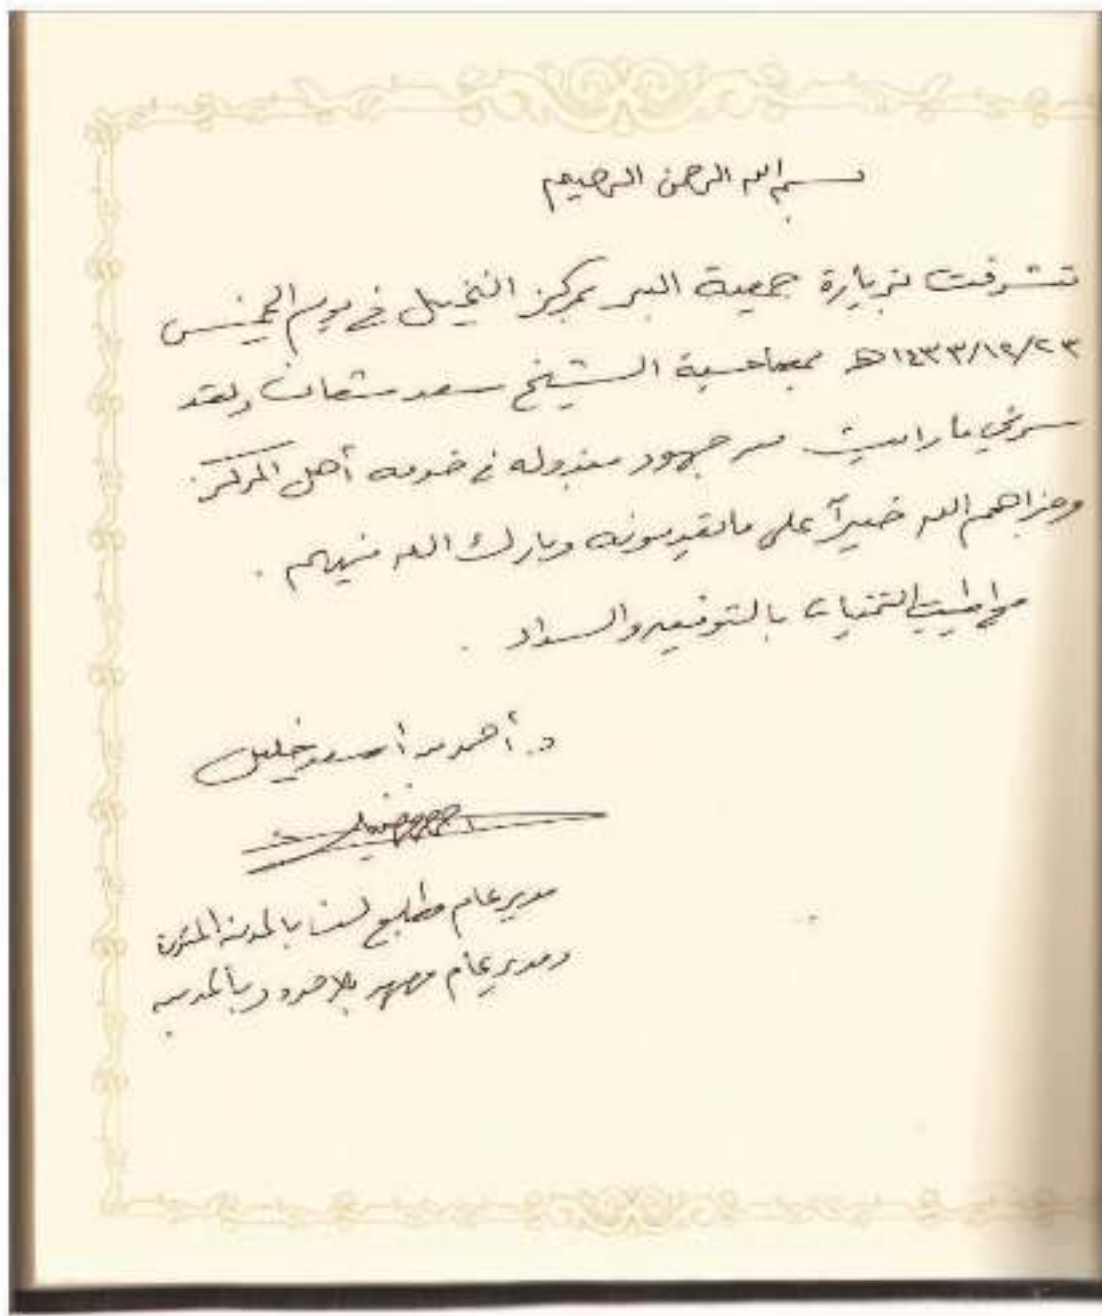 بسم الله الرحمن الرحيم
تشرفت بزيارة جمعية البر بمركز النخيل في يوم الخميس
١٤٣٣/١٢/٢٣هـ بمعية الشيخ سعد ولقد
سرني ما رأيت من جهود مبذوله في خدمه أهل المركز
وجزاهم الله خيراً على ما يقدمونه وبارك الله فيهم .
مع اطيب التمنيات بالتوفيق والسداد .
د. أحمد أسعد خليل
مدير عام بالمدينة المنورة
ومدير عام بلا حدود بالمدينه